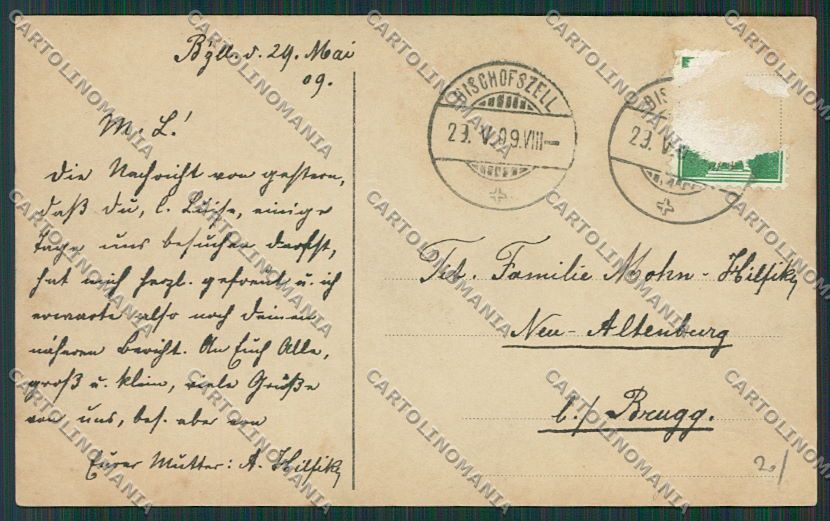 Bzll. d. 29. Mai
09.
M. L.!
Die Nachricht von gestern,
daß du, l. Luise, einige
Tage uns besuchen darfst,
hat mich herzl. gefreut u. ich
erwarte also noch deinen
näheren Bericht. An Euch Alle,
groß u. klein, viele Grüße
von uns, bes. aber von
Eurer Mutter: A. Hilfiker
BISCHOFSZELL
29. V. 09. VIII—
BIS
29. V
Tit. Familie Mohn-Hilfiker
Neu-Altenburg
b./ Brugg.
2./
CARTOLINOMANIA